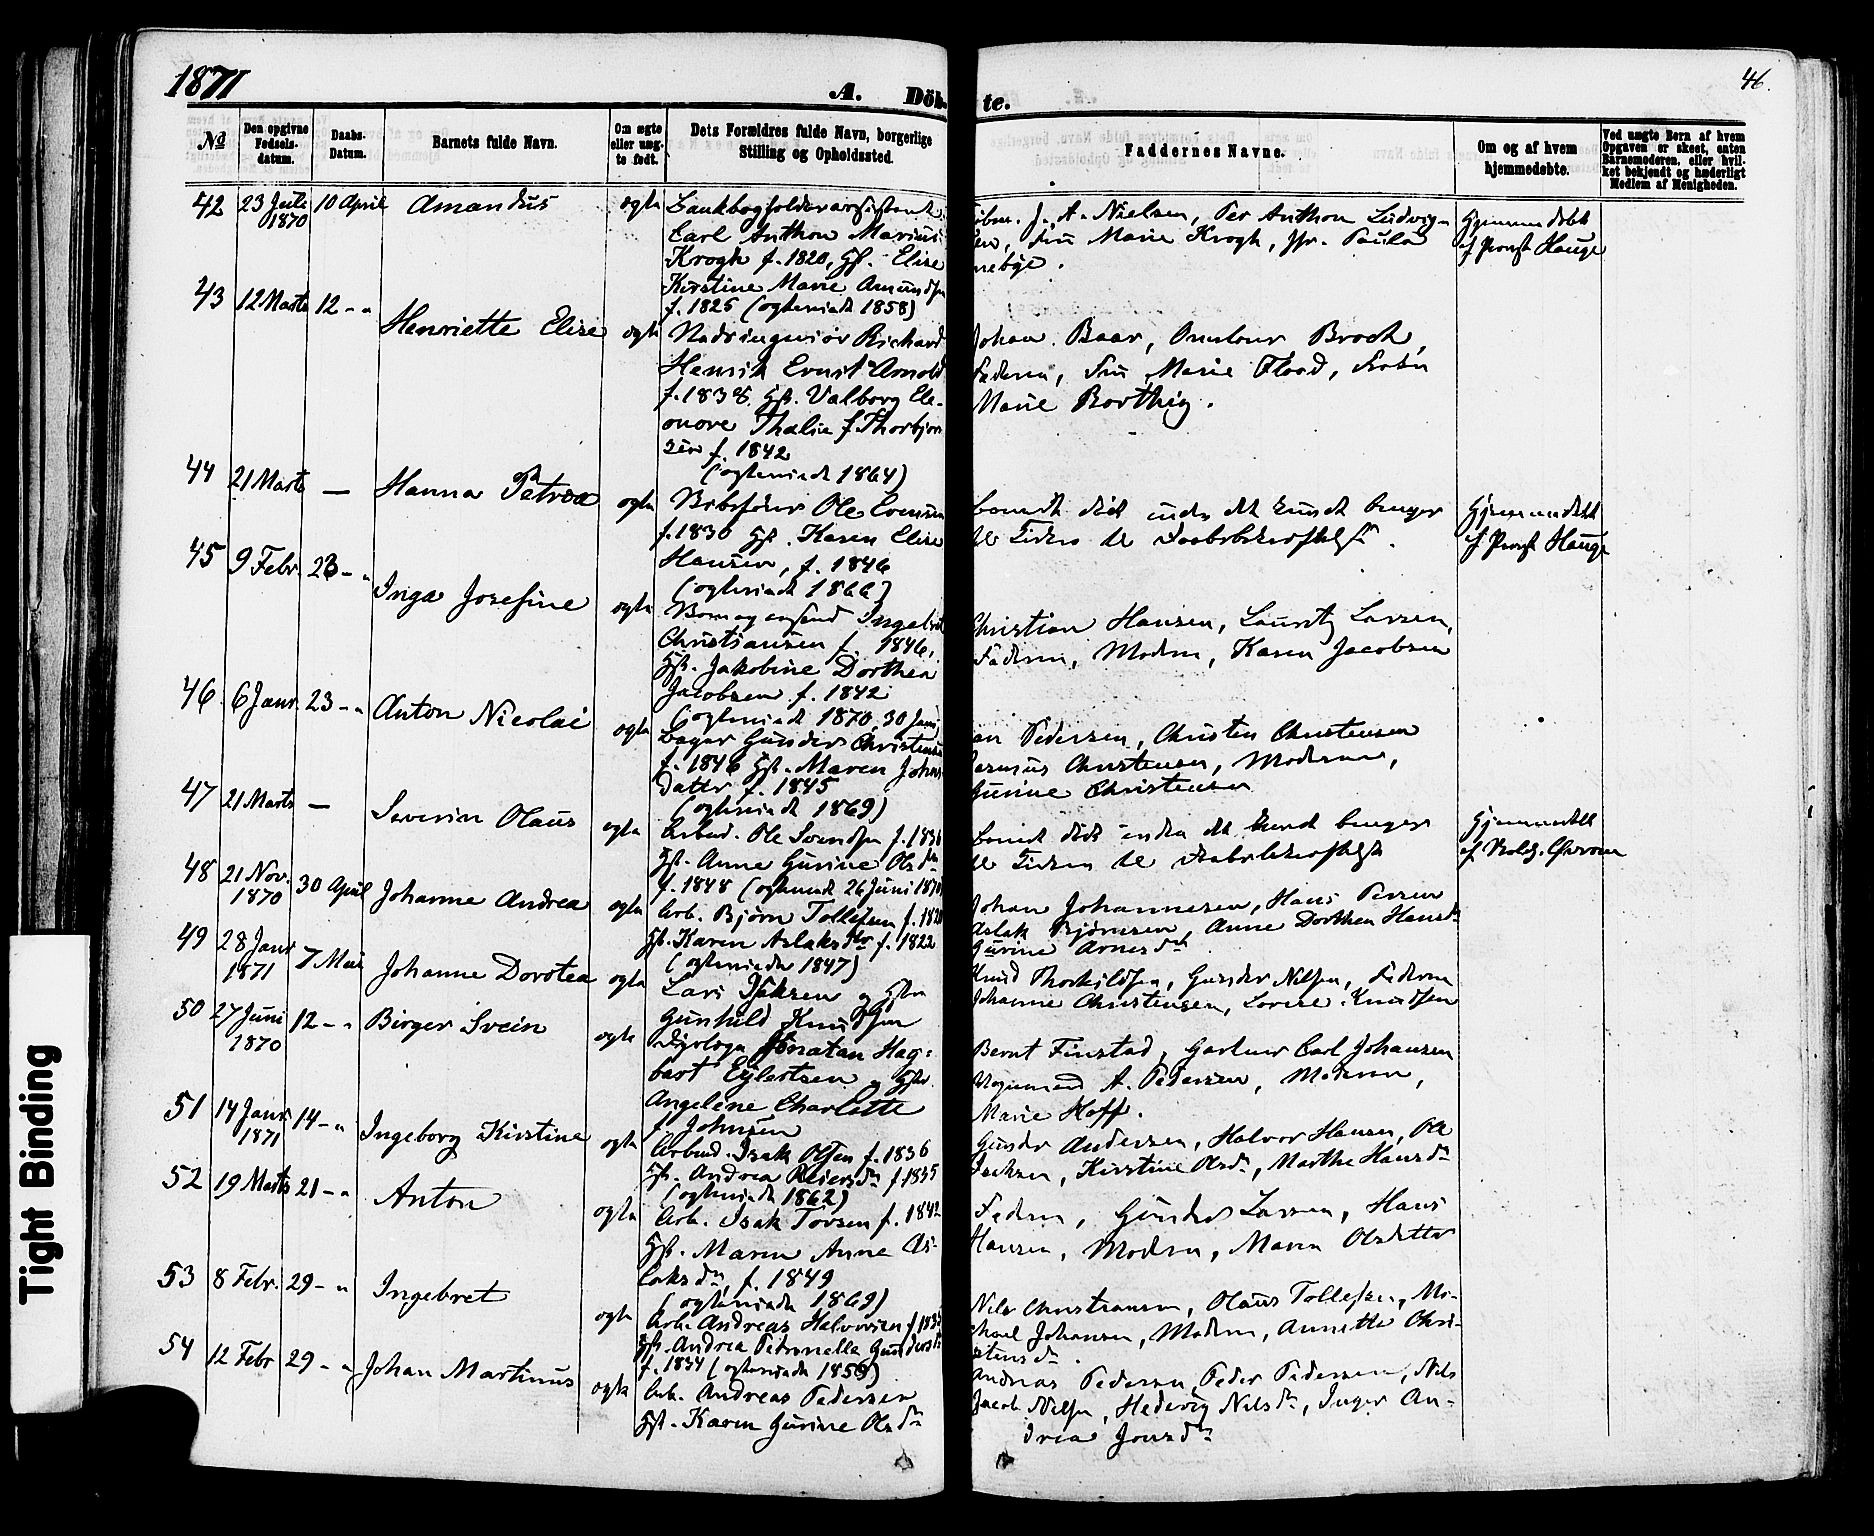 1871
A. Döb-
te.
46.
№
Den opgivne Fødsels-datum.
Daabs-Datum.
Barnets fulde Navn.
Om ægte eller uæg-te født.
Dets Forældres fulde Navn, borgerlige Stilling og Opholdssted.
Faddernes Navne.
Om og af hvem hjemmedøbte.
Ved uægte Børn af hvem Opgaven er skeet, enten Barnemoderen, eller hvil-ket bekjendt og hæderligt Medlem af Menigheden.
42 23 Juli 1870 10 April Amandus ægte
Carl Anthon Marius
Krogh f. 1820, Hst. Elise
Kirstine Marie Amundsen
f. 1825 (ægteviede 1858)
J. A. Nielsen, Per Anthon Ludvig-
sen, Fru Marie Krogh, Jfr. Paula
Hjemmedøbt
af Provst Hauge
43 12 Marts 12 - " Henriette Elise ægte
Richard
Henrik Ernst Arnold
f. 1838, Hst. Valborg Ele-
onore Thalia f. Thorbjørn
sen f. 1842
(ægteviede 1864)
Johan Baar, Broch,
Faderen, Fru Marie Flood,
Marie Borthig.
44 21 Marts — Hanna Petrea ægte
Ole Evensen
f. 1830 Hst. Karen Elise
Hansen, f. 1846
(ægteviede 1866)
Hjemmedøbt
af Provst Hauge
45 9 Febr. 23 - " Inga Josefine ægte
Ingebret
Christiansen f. 1846,
Hst. Jakobine Dorthea
Jacobsen f. 1842
(ægteviede 1870, 30 Juni)
Christian Hansen, Lauritz Larsen,
Faderen, Modern, Karen Jacobsen
46 6 Janr. 23 - " Anton Nicolai ægte
Bager Gunder Christensen
f. 1846 Hst. Maren Johns
datter f. 1845
(ægteviede 1869)
Pedersen, Christen Christensen
Rasmus Christensen, Moderen,
Gurine Christensen
47 21 Marts — Severin Olaus ægte
Arbeid. Ole Svendsen f. 1836
Hst. Anne Gurine Olsdr
f. 1848 (ægteviede 26 Juni 1870)
Hjemmedøbt
48 21 Nov. 1870 30 April Johanne Andrea ægte
Arb. Bjørn Tollefsen f. 1820
Hst. Karen Aslaksdtr f. 1822
(ægteviede 1847)
Johan Johannesen, Hans Persen
Aslak Bjørnsen, Anne Dorthea Hansdr
Gurine Arnesdr
49 28 Janr 1871 7 Mai Johanne Dorotea ægte
Lars Isaksen og Hstru
Gunhild Knudsen
Knud Thorkildsen, Gunder Nilsen, Faderen
Johanne Christensen, Lovise Knudsen
50 27 Juni 1870 12 - " Birger Svein ægte
Jonatan Hag-
bart Eylertsen og Hstr.
Angelene Charlotte
f. Johnsen
Bernt Finstad, Gartner Carl Johansen
A. Pedersen, Moderen,
Marie Hoff.
51 14 Janr. 1871 14 - " Ingeborg Kirstine ægte
Arbeid. Isak Olsen f. 1836
Hst. Andrea Reiersdr f. 1835
(ægteviede 1862)
Gunder Andersen, Halvor Hansen, Ole
Isaksen, Kirstine Olsdr, Marthe Hansdr
52 19 Marts 21 - " Anton ægte
Arb. Isak Torsen f. 1842
Hst. Maren Anne As-
laksdr, f. 1849
(ægteviede 1869)
Faderen, Gunder Larsen, Hans
Hansen, Modern, Maren Olsdatter
53 8 Febr. 29 - " Ingebret ægte
Arb. Andreas Halvorsen f. 183
Hst. Andrea Petronelle Gundersdr
f. 1834 (ægteviede 1859)
Nils Christiansen, Olaus Tollefsen, Mi-
chael Johansen, Modern, Annette Chri-
stensdr.
54 12 Febr 29 - " Johan Martinus ægte
Arb. Andreas Pedersen
Hst. Karen Gurine Olsdr
Andreas Pedersen, Peder Pedersen, Nils
Jacob Nilsen, Hedevig Nilsdr, Inger An-
drea Jonsdr
Tight Binding